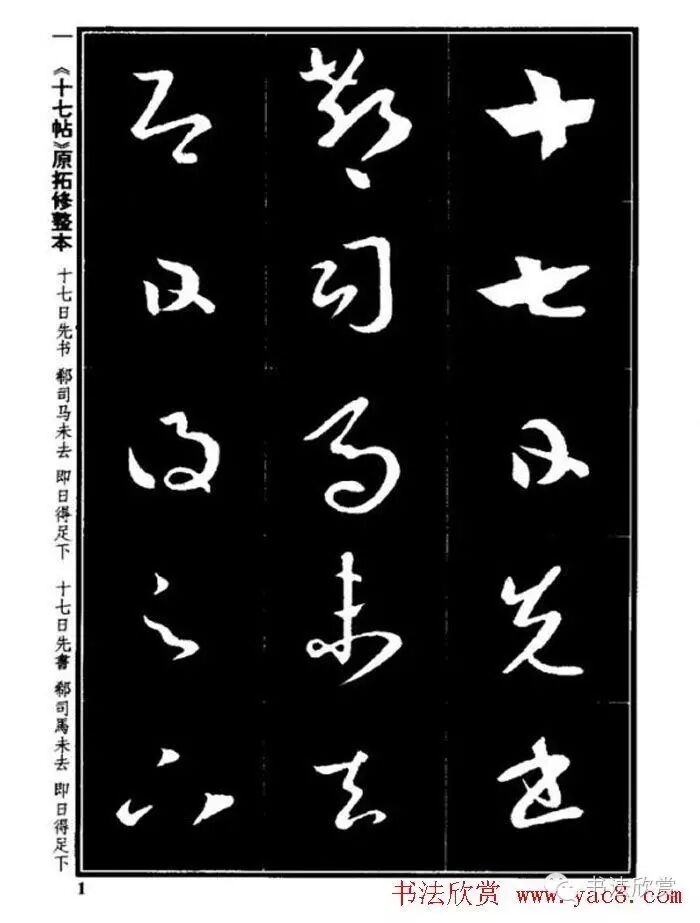 十七日先書
郗司馬未去
即日得足下
一 《十七帖》原拓修整本
十七日先书 郗司马未去 即日得足下
十七日先書 郗司馬未去 即日得足下
1
书法欣赏 www.yac8.com
书法欣赏